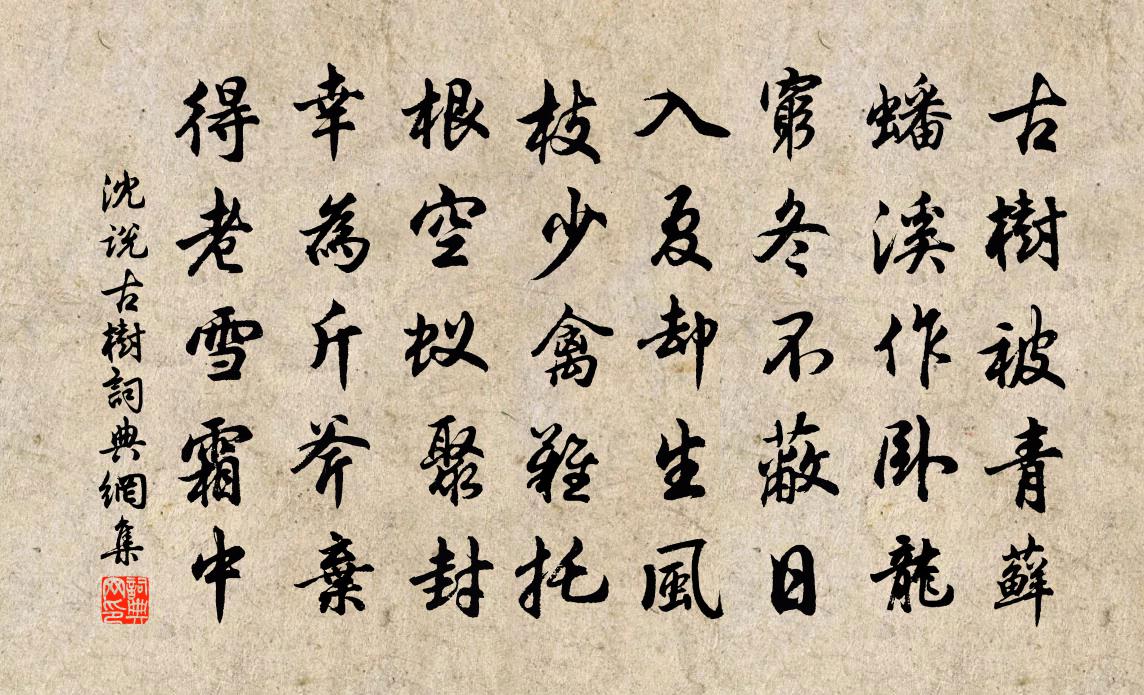 古樹被青蘚
蟠溪作卧龍
窮冬不蔽日
入夏却生風
枝少禽難托
根空蚁聚封
幸為斤斧棄
得老雪霜中
沈说古樹詞典網集
詞典网印